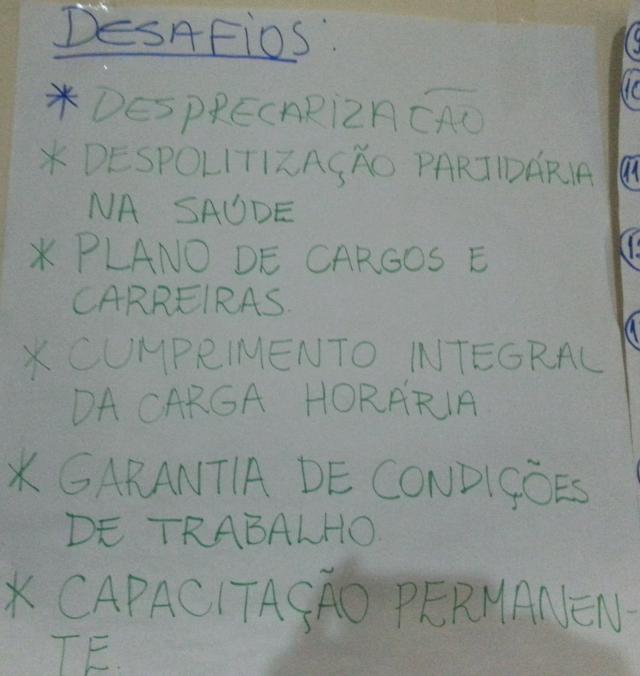 DESAFIOS:
* DESPRECARIZAÇÃO
* DESPOLITIZAÇÃO PARTIDÁRIA
NA SAÚDE
* PLANO DE CARGOS E
CARREIRAS.
* CUMPRIMENTO INTEGRAL
DA CARGA HORÁRIA
* GARANTIA DE CONDIÇÕES
DE TRABALHO.
* CAPACITAÇÃO PERMANEN-
TE.
9
10
11